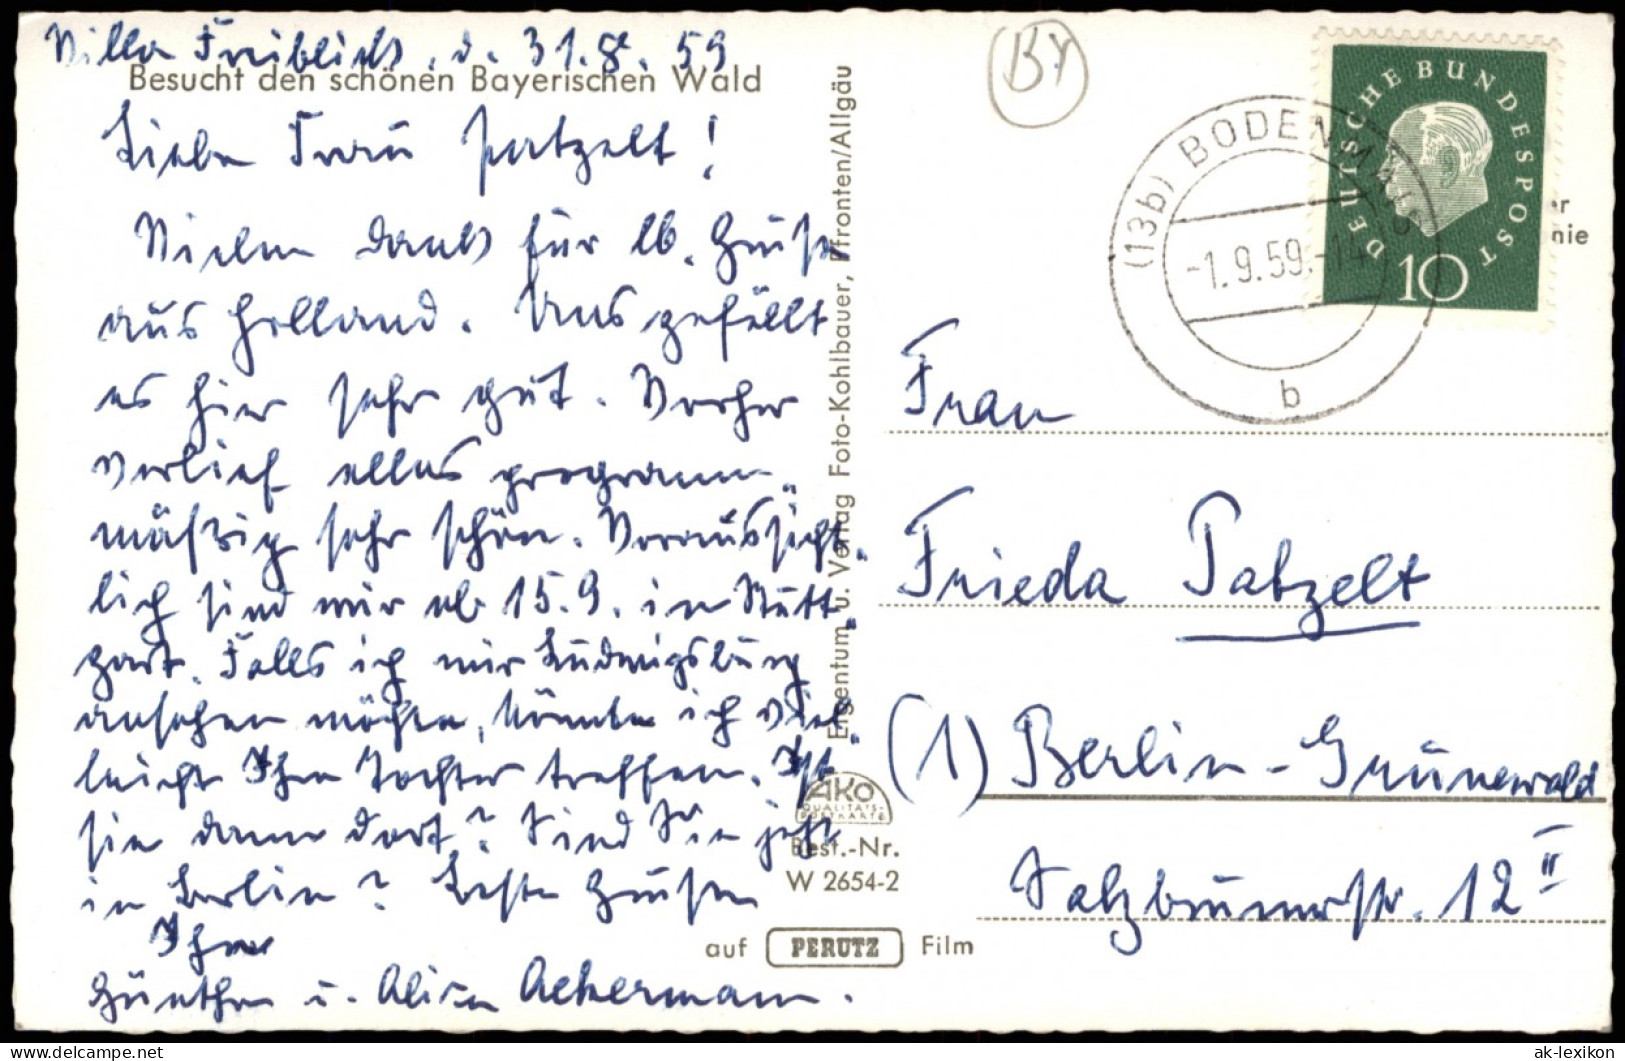 Villa Freiblick, d. 31.8.59
Besucht den schönen Bayerischen Wald
Liebe Frau Patzelt!
Vielen Dank für lb. Grüße
aus Holland. Uns gefällt
es hier sehr gut. Vorher
verlief alles programm-
mäßig sehr schön. Voraussicht-
lich sind wir ab 15.9. in Stutt-
gart. Falls ich mir Ludwigsburg
ansehen möchte, könnte ich viel-
leicht Ihre Tochter treffen. Ist
sie dann dort? Sind Sie jetzt
in Berlin? Beste Grüße
Ihre
Günther u. Alice Ackermann.
Eigentum u. Verlag Foto-Kohlbauer, Pfronten/Allgäu
AKO
QUALITÄTS-
POSTKARTE
Best.-Nr.
W 2654-2
auf PERUTZ Film
BY
(13b) BODENMAIS
-1.9.59.-14
b
DEUTSCHE BUNDESPOST
10
er
nie
Frau
Frieda Patzelt
(1) Berlin-Grunewald
Salzbrunnerstr. 12 II
ak-lexikon